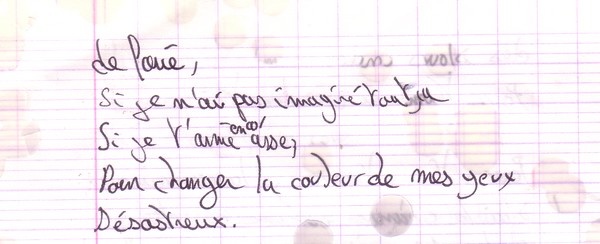 de
Si je n'ai pas imaginé tout ça
Si je t'aime enco' assez
Pour changer la couleur de mes yeux
Désastreux.